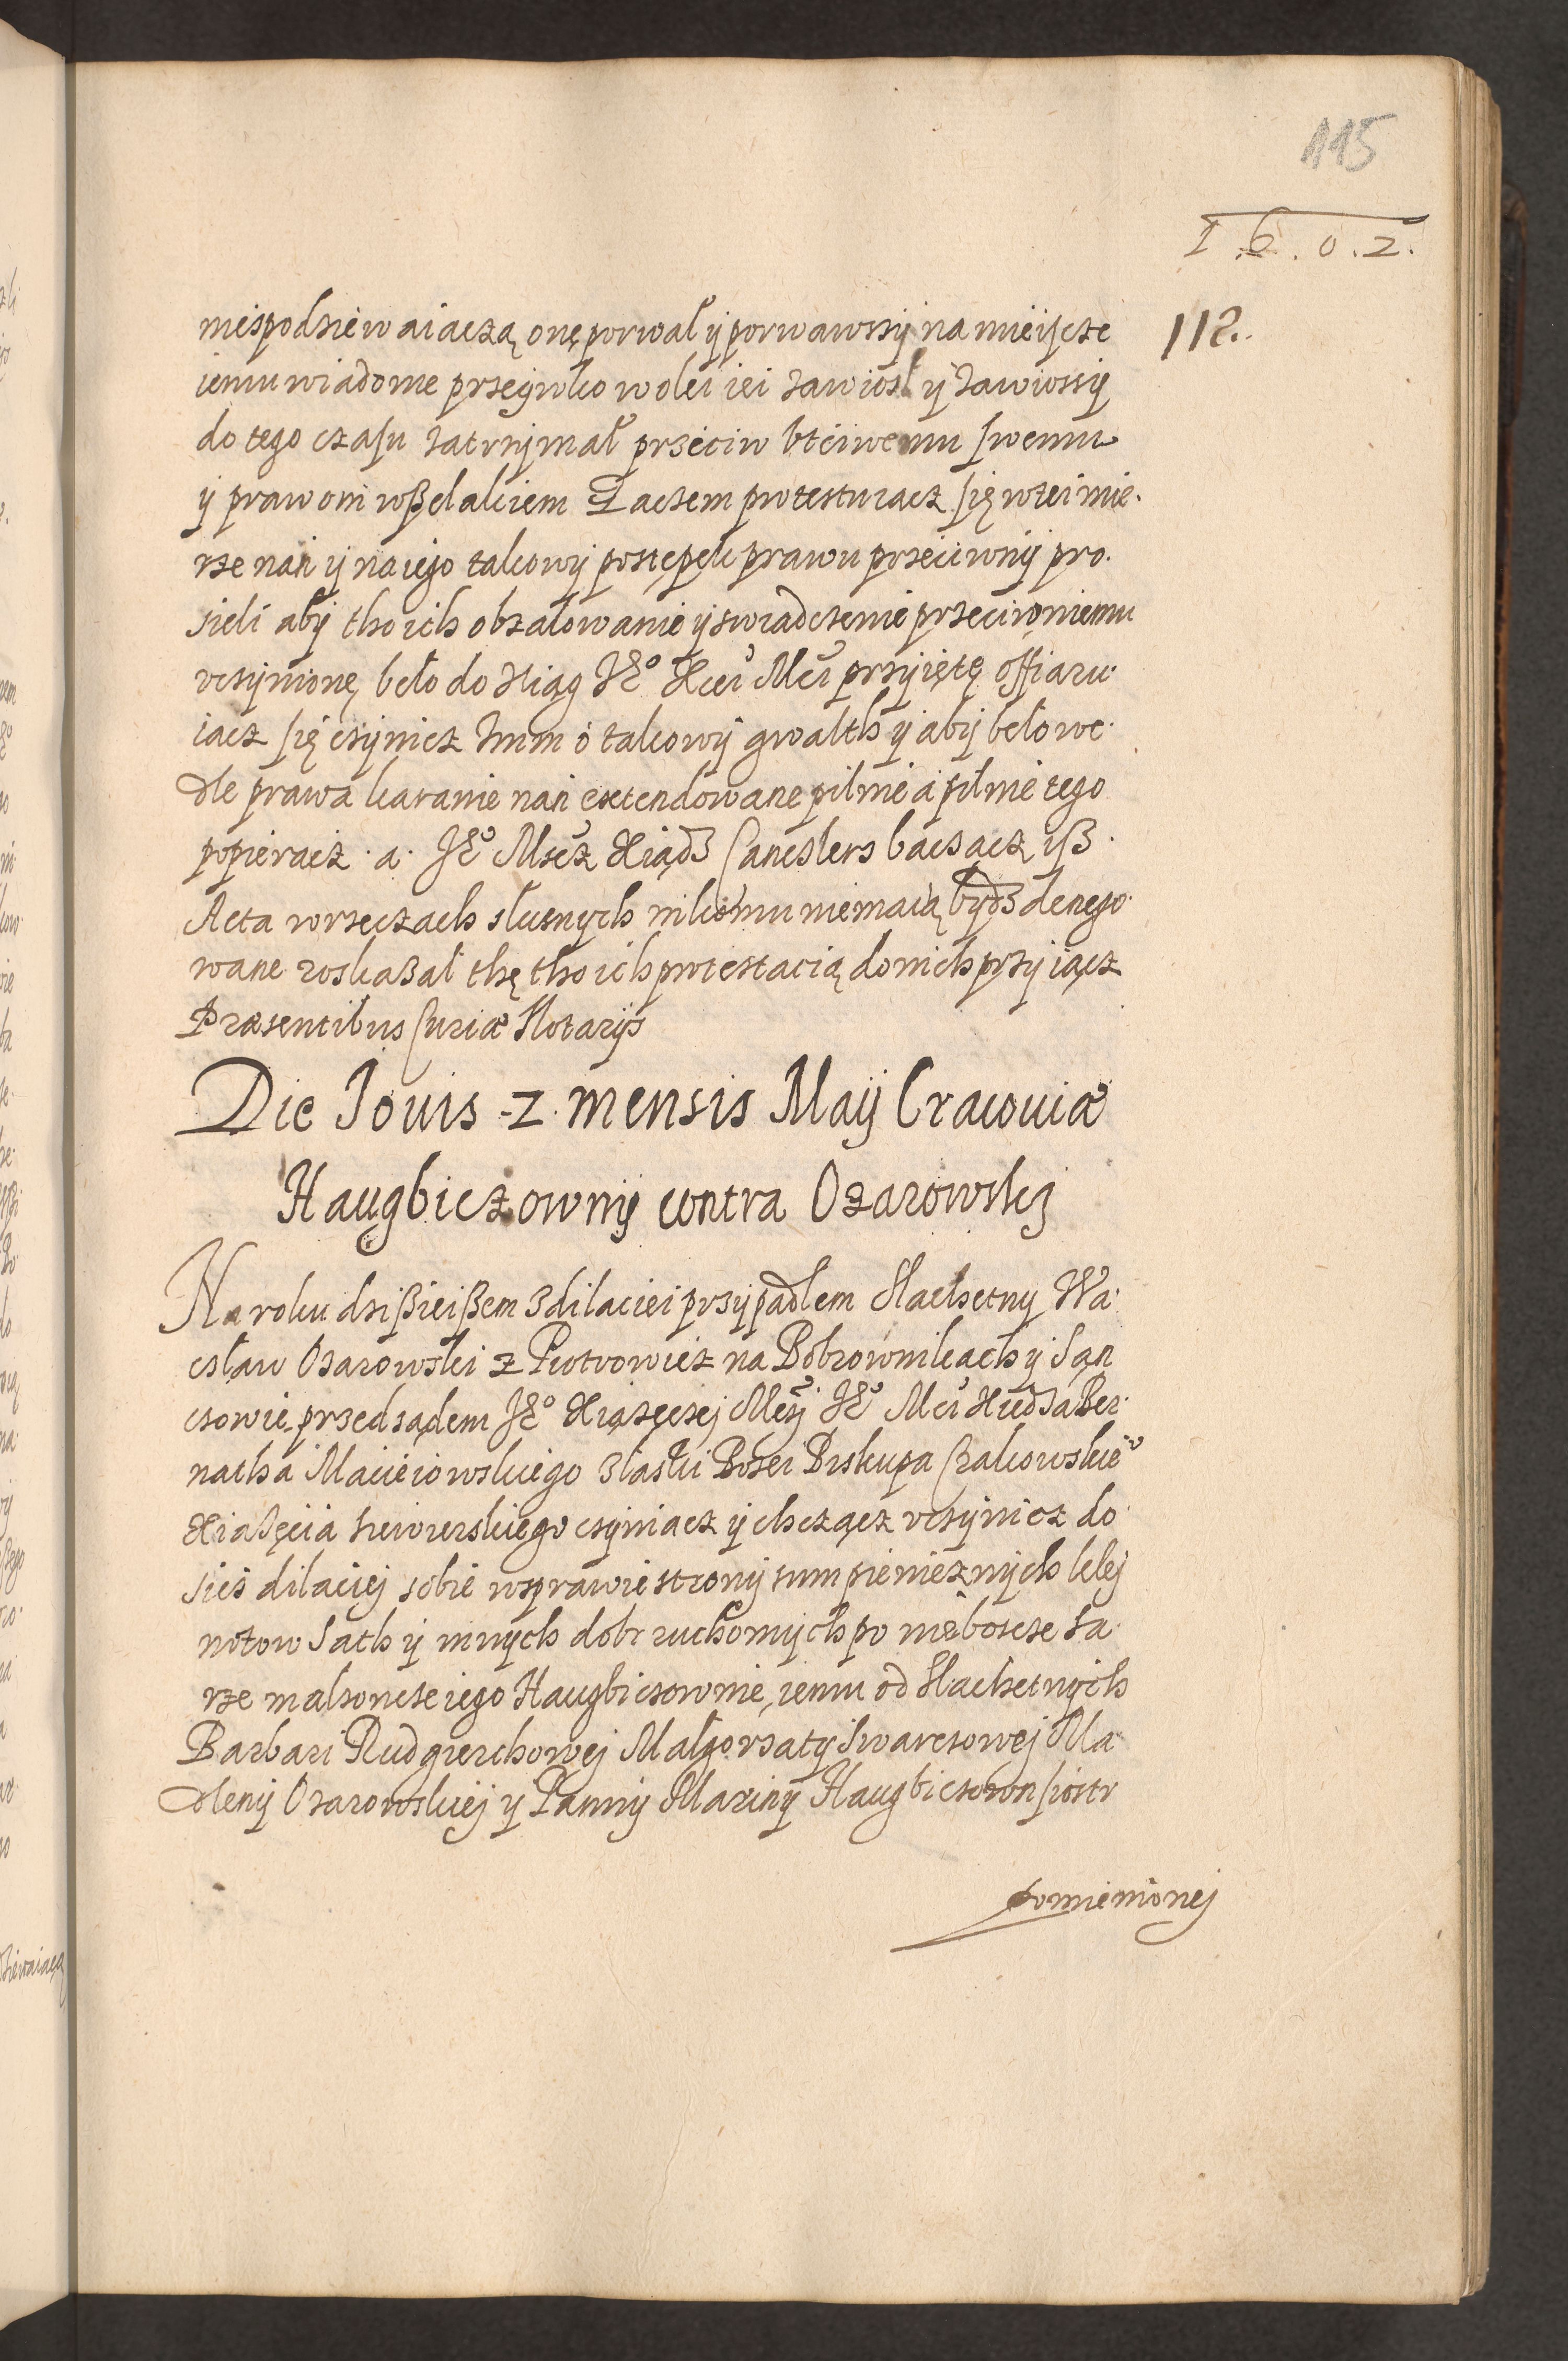 115
1.6.0.2.
112.
niespodziewaiączą onę porwał y porwawszy na mieiscze
iemu wiadome przeciwko wolei iei zawiosł y zawiosszy
do tego czasu zatrzymał przeciw btciwemu swemu
y prawom wßelakiem Zaczem protestuiacz się w tei mie.
rze nań y na iego takowy postępek prawu przeciwny pro.
sieli aby tho ich obzałowanie y swiadczenie przeciw niemu
vczynionę beło do Xiąg JEo Xcei Mci przyiętę offiaru.
iacz się czynicz o takowy gwalth y aby beło we.
dle prawa karanie nań extendowane pilnie a pilnie tego
popieraiacz . a . JEo Mscz Xiądz Canczlerz baczacz isz.
Acta w rzeczach slusznych nikomu niemaią bydz denego.
wane roskaßał thę tho ich protestacią do nich przyiącz
Præsentibus Curiæ Notarijs
Die Jouis 2. mensis Maij Cracouiæ
Haugbiczowny contra Ozarowskj
Na roku dzißieißem z dilaciei przypadłem Slachetny Wa.
czław Ozarowski z Piotrowicz na Bobrownikach y San
czowie, przed sądem JEo Xiązęczej Mczi JEo Mci Xiedza Ber.
natha Macieiowskiego z łaski Bozei Biskupa Crakowskieo
Xiazęcia Siewierskiego czyniacz y chcząncz vczynicz do
sicz dilaciej sobie w sprawie strony sum pienieznych klej
notow Sath y innych dobr ruchomych po niebozcze Sa.
rze malzoncze iego Haugbiczownie, iemu od Slachetnych
Barbari Rudgierzchowej Małgorzaty Swarczowej Ma
dleny Ozarowskiej y Panny Mariny Haugbiczown siostr
pomienionej